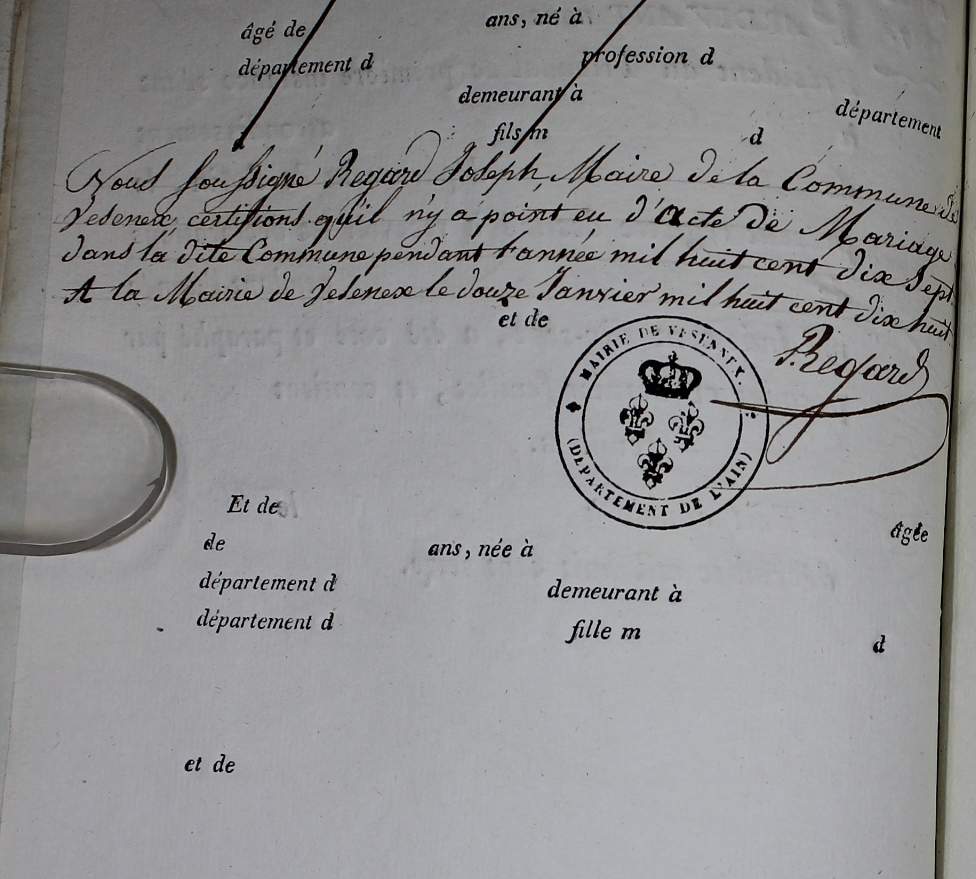 âgé de ans, né à
département d profession d
demeurant à département
fils m d
Nous soussigné Regard Joseph, Maire de la Commune de
Vesenex certifions qu'il n'y a point eu d'acte de Mariage
dans la dite Commune pendant l'année mil huit cent dix Sept
A la Mairie de Vesenex le douze Janvier mil huit cent dix huit
et de
Regard
MAIRIE DE VESENNEX.
(DÉPARTEMENT DE L'AIN)
Et de âgée
de ans, née à
département d demeurant à
département d fille m d
et de